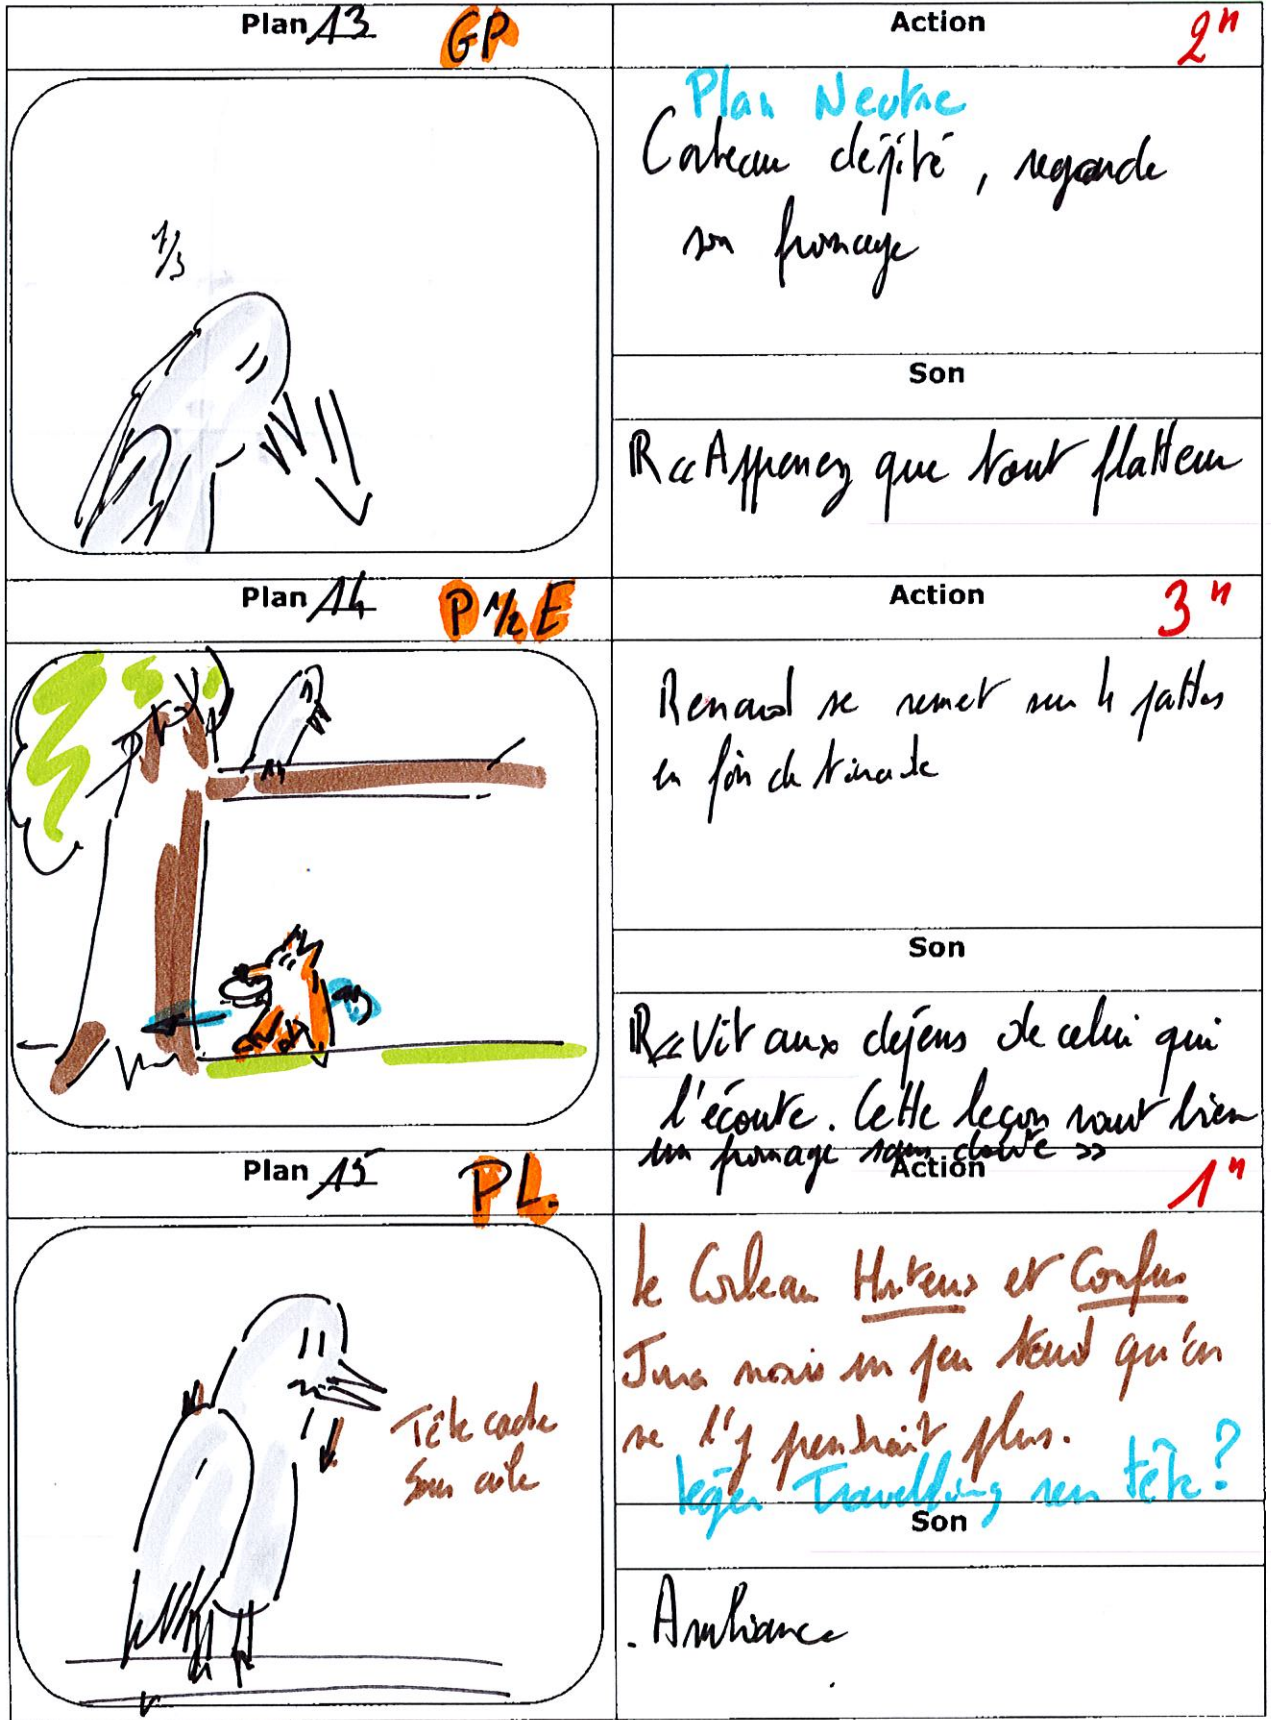 Plan 13
GP
Action
2"
Plan Neutre
Corbeau dépité, regarde
son fromage
1/3
Son
R << Apprenez que tout flatteur
Plan 14
P 1/2 E
Action
3"
Renard se remet sur 4 pattes
en fin de tirade
Son
R << Vit aux dépens de celui qui
l'écoute. Cette leçon vaut bien
un fromage sans doute >>
Plan 15
PL.
Action
1"
le Corbeau Honteux et Confus
Jura mais un peu tard qu'on
ne l'y prendrait plus.
léger Travelling sur tête ?
Tête cache
sous aile
Son
. Ambiance